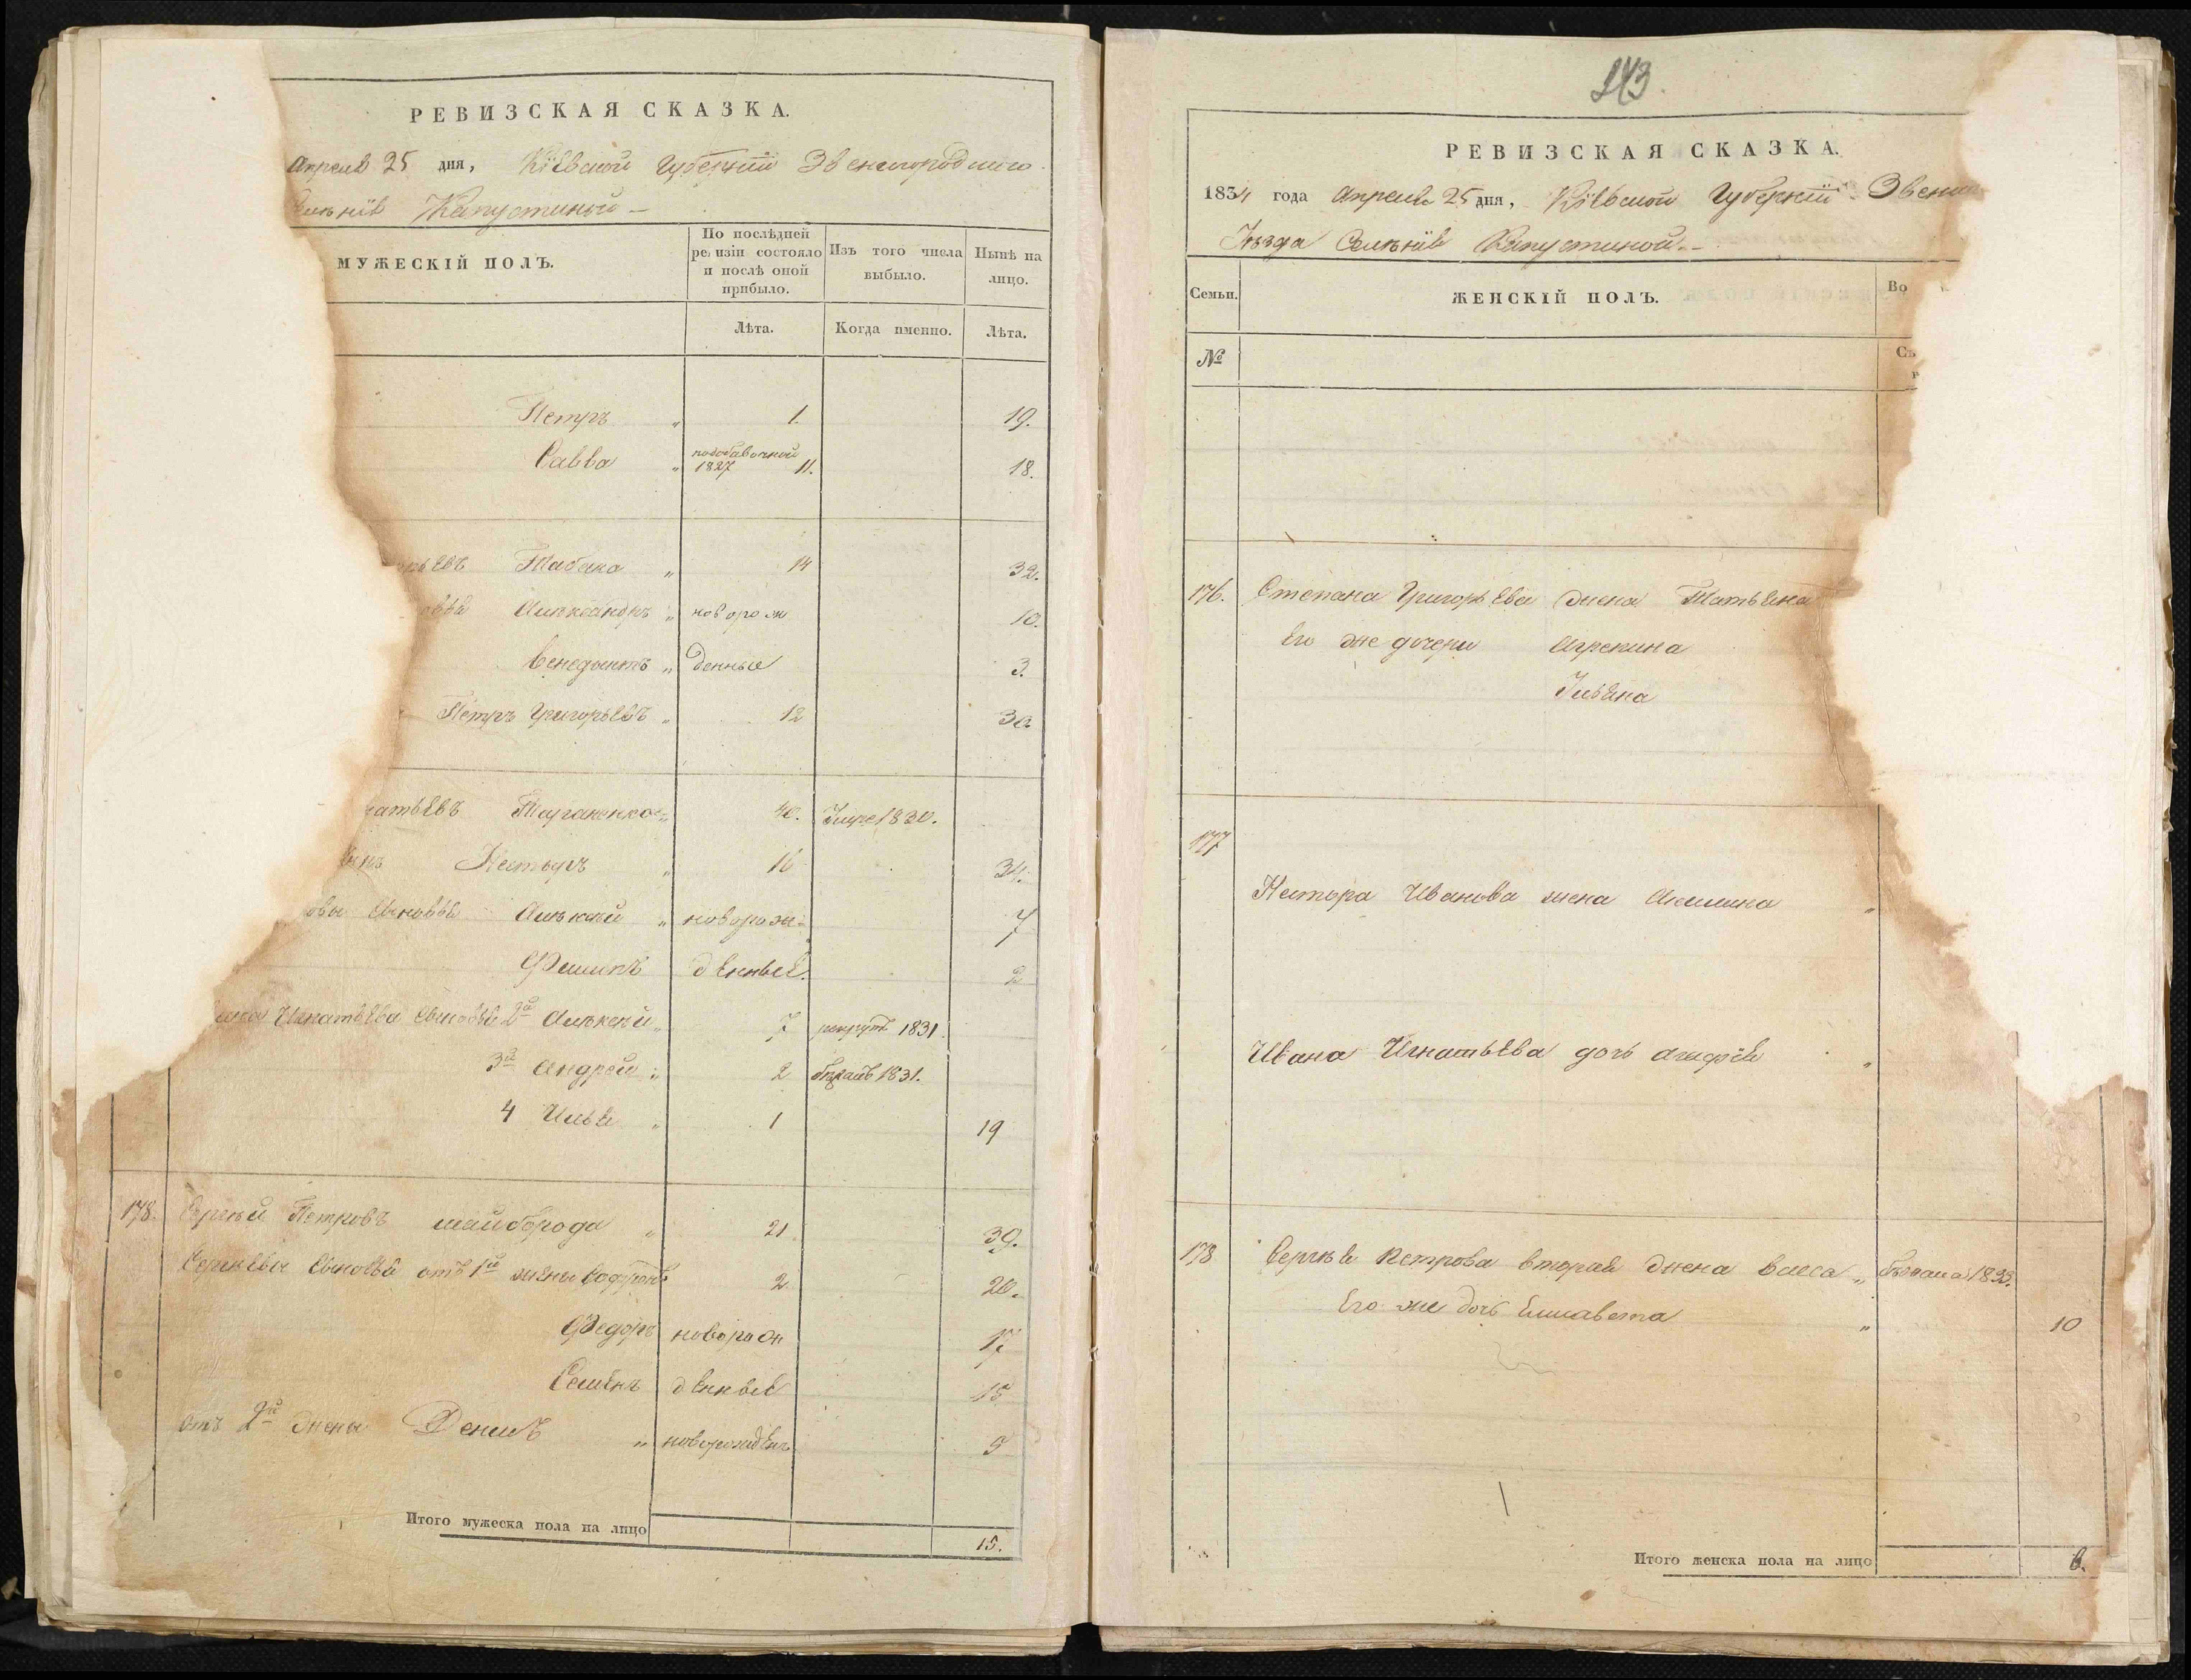 РЕВИЗСКАЯ СКАЗКА.
Апреля 25 дня, Кіевской Губерніи Звенигородскаго
Селенія Капустиной
МУЖЕСКІЙ ПОЛЪ.
По послѣдней ревизіи состояло и послѣ оной прибыло.
Изъ того числа выбыло.
Нынѣ на лицо.
Лѣта.
Когда именно.
Лѣта.
Петръ " 1. 19.
Савва " 1827 11. 18.
Табака " 14 32.
Александръ " новорож 10.
Венедыктъ " денные 3.
Петръ Григорьевъ " 12 30
натьевъ Тараненко " 40. 1830.
Несторъ " 16 34.
овы сыновья Алексѣй " новорож- 7
Филипъ денные. 2
Игнатьева сыновья 2й Алексѣй " 7 рекрутъ 1831.
3й Андрей " 2 бѣжалъ 1831.
4 Илья " 1 19
178. Сергѣй Петровъ майборода " 21 39.
Сергѣевы сыновья отъ 1й жены Софронъ 2 20.
Федоръ новорож 17
Семенъ денные 15
отъ 2й жены Денисъ " новорожденъ 5
Итого мужеска пола на лицо
15.
243.
РЕВИЗСКАЯ СКАЗКА.
1834 года Апреля 25 дня, Кіевской Губерніи Звени
Уѣзда Селенія Капустиной.
Семьи.
ЖЕНСКІЙ ПОЛЪ.
Во
№
176. Степана Григорьева жена Татьяна
Его же дочери Агрепина
Ульяна
177
Нестора Иванова жена Акилина "
Ивана Игнатьева дочь "
178 Сергѣя Петрова вторая жена Васса " 1833.
Его же дочь Елисавета " 10
Итого женска пола на лицо
6.